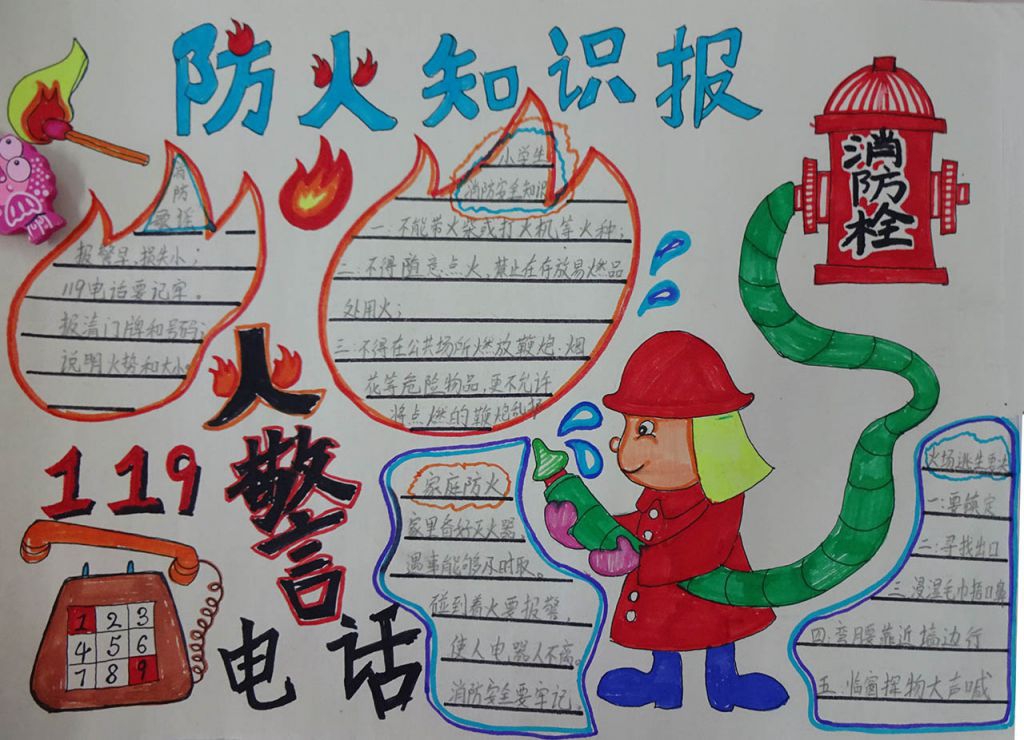 防火知识报
消防栓
消防
要括
报警早，损失小；
119电话要记牢。
报清门牌和号码；
说明火势和大小。
小学生
消防安全知识
一：不能带火柴或打火机等火种；
二：不得随意点火，禁止在存放易燃品
处用火；
三：不得在公共场所燃放鞭炮、烟
花等危险物品，更不允许
将点燃的鞭炮乱扔
火警
119
电话
1 2 3
4 5 6
7 8 9
家庭防火
家里备好灭火器
遇事能够及时取。
碰到着火要报警，
使人电器人不离。
消防安全要牢记。
火场逃生要决
一：要镇定
二：寻找出口
三：浸湿毛巾捂口鼻
四：弯腰靠近墙边行
五：临窗挥物大声喊